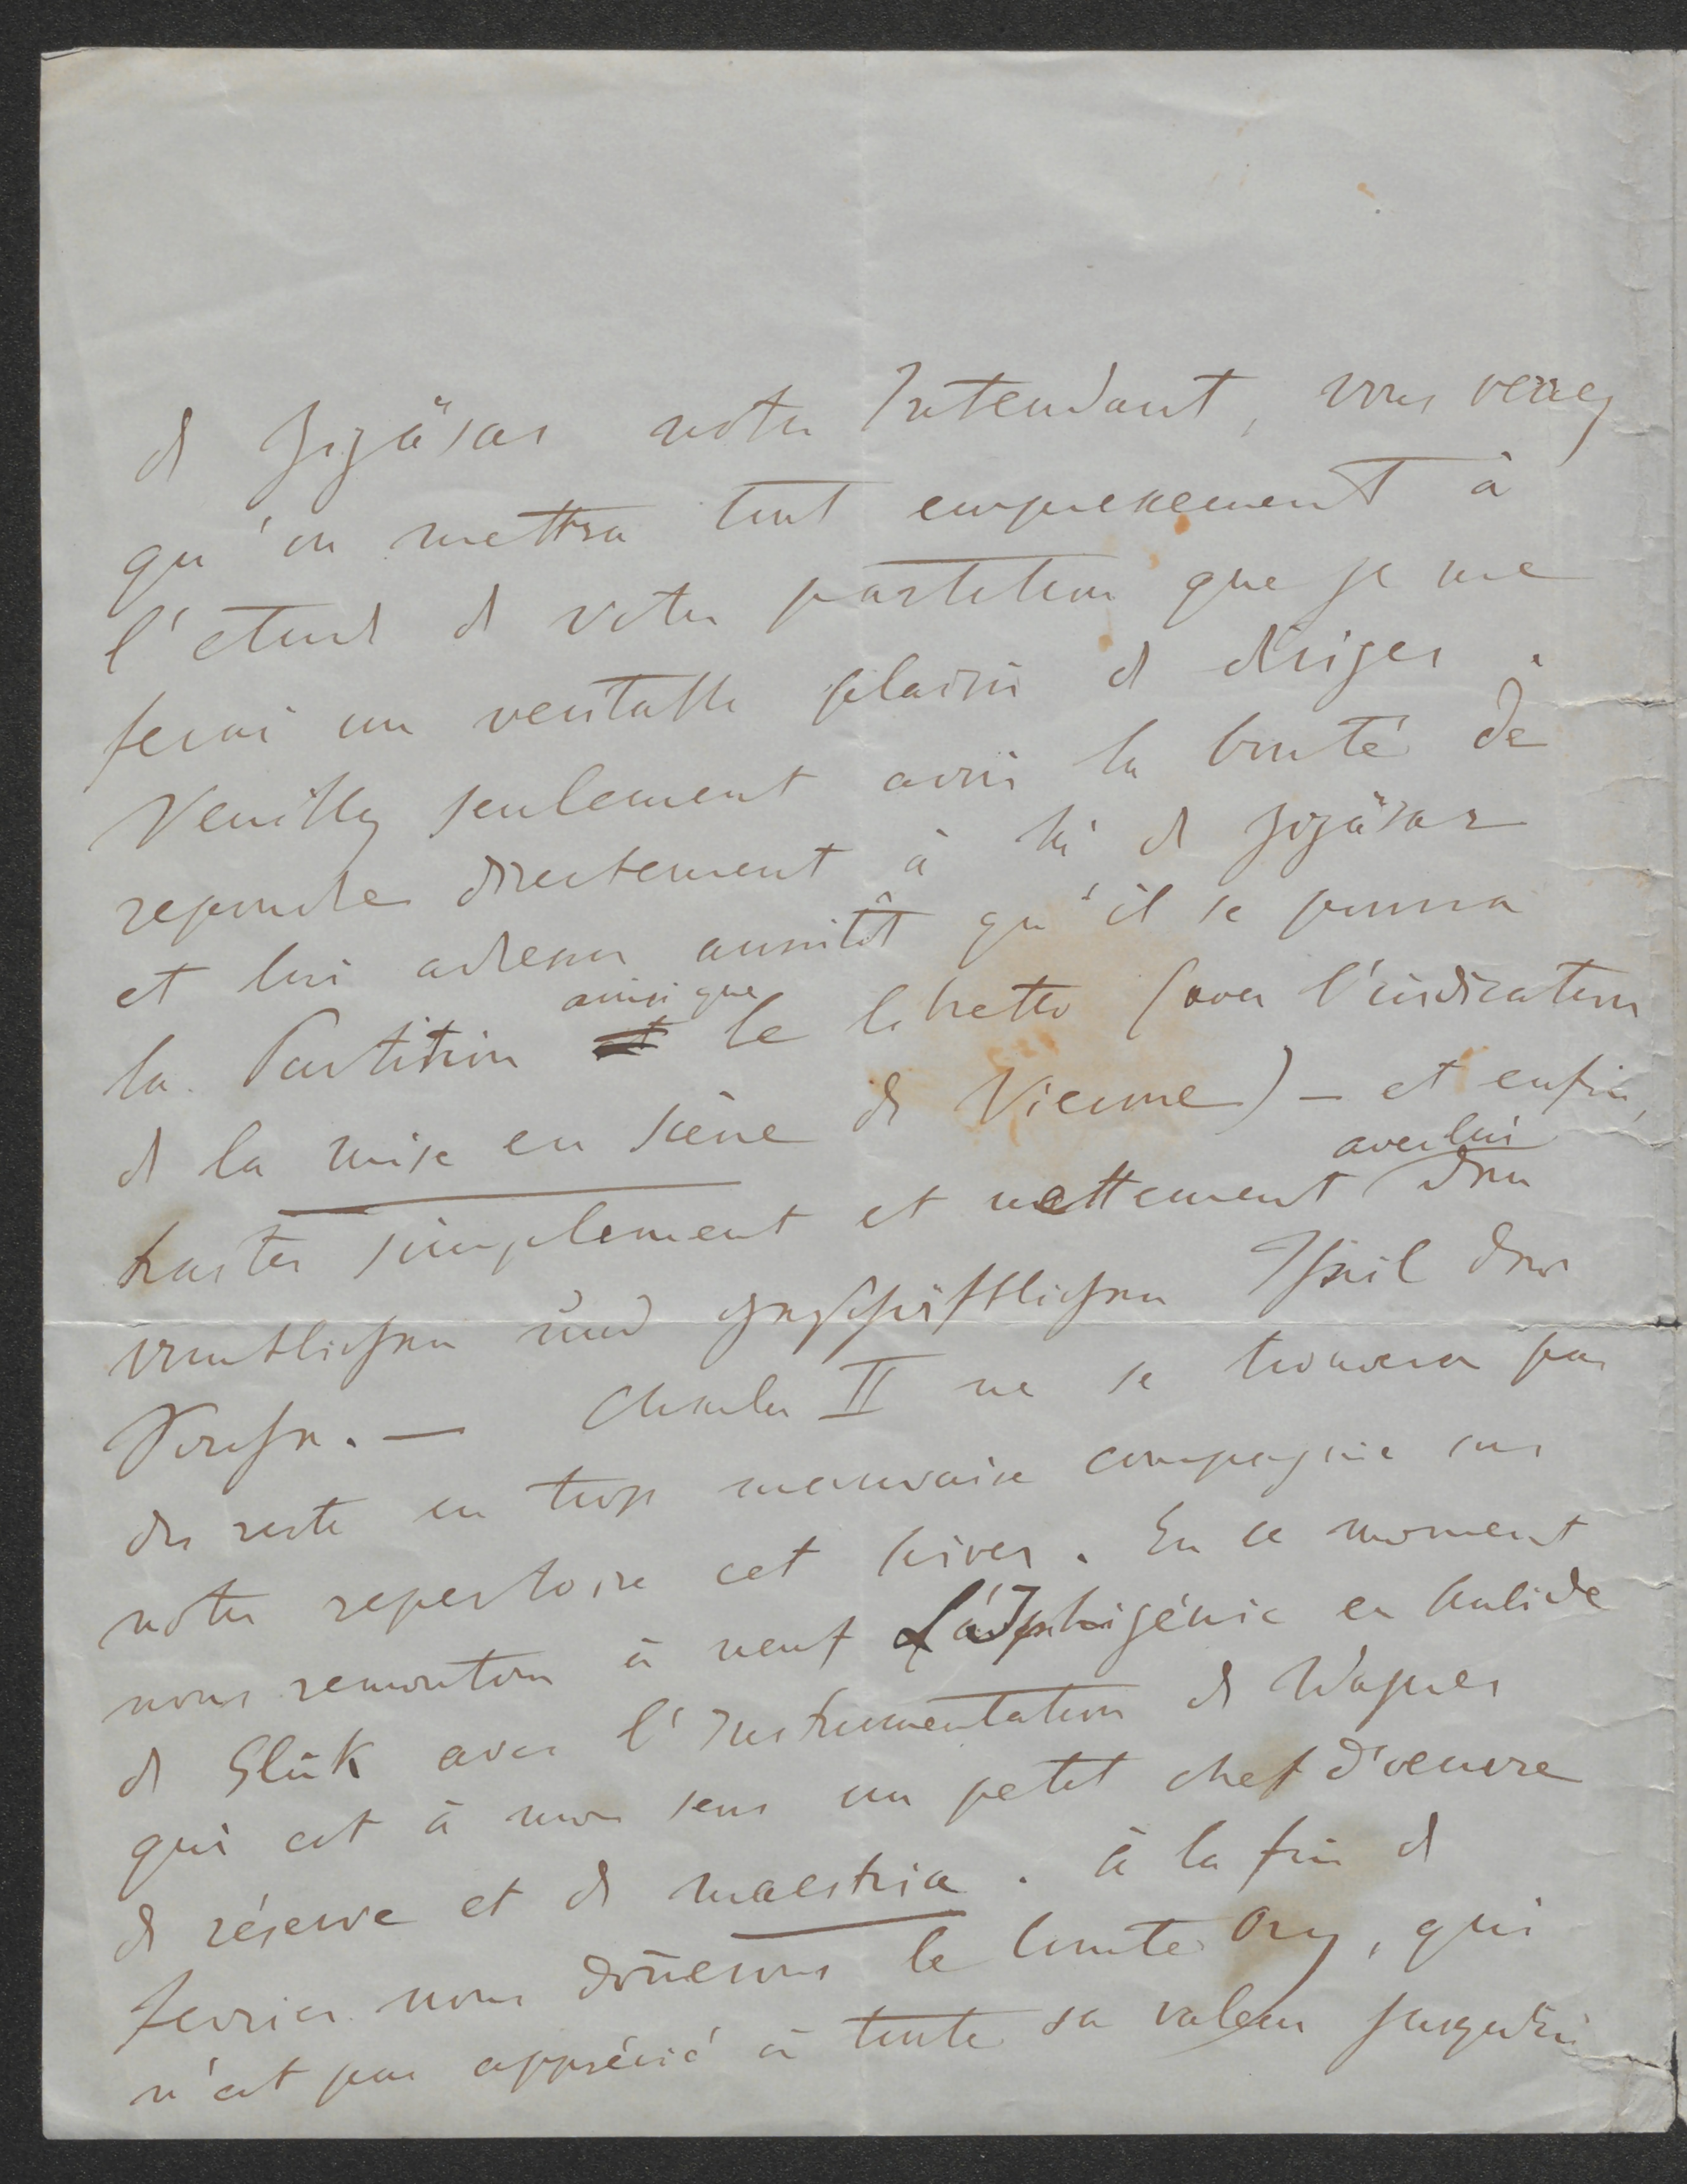 de Zigäsar notre Intendant, vous verrez
qu'on mettra tout empressement à
l'etude de votre partition que je me
ferai un veritable plaisir de diriger.
Veuillez seulement avoir la bonté de
repondre directement à Mr de Zigäsar
et lui adresser aussitôt qu'il se pourra
la Partition ainsi que le libretto (avec l'indication
de la mise en scène de Vienne) – et enfin,
traiter simplement et nettement avec lui den
amtlichen und geschäftlichen Theil der
Sache. – Charles II ne se trouvera pas
du reste en trop mauvaise compagnie sur
notre repertoire cet hiver. En ce moment
nous remontons à neuf L'Iphigénie en Aulide
de Glück avec l'Instrumentation de Wagner
qui est à mon sens un petit chef d'oeuvre
de réserve et de maestria. à la fin de
fevrier nous don̄erons le Comte Ory, qui
n'est pas apprécié à toute sa valeur jusqu'ici